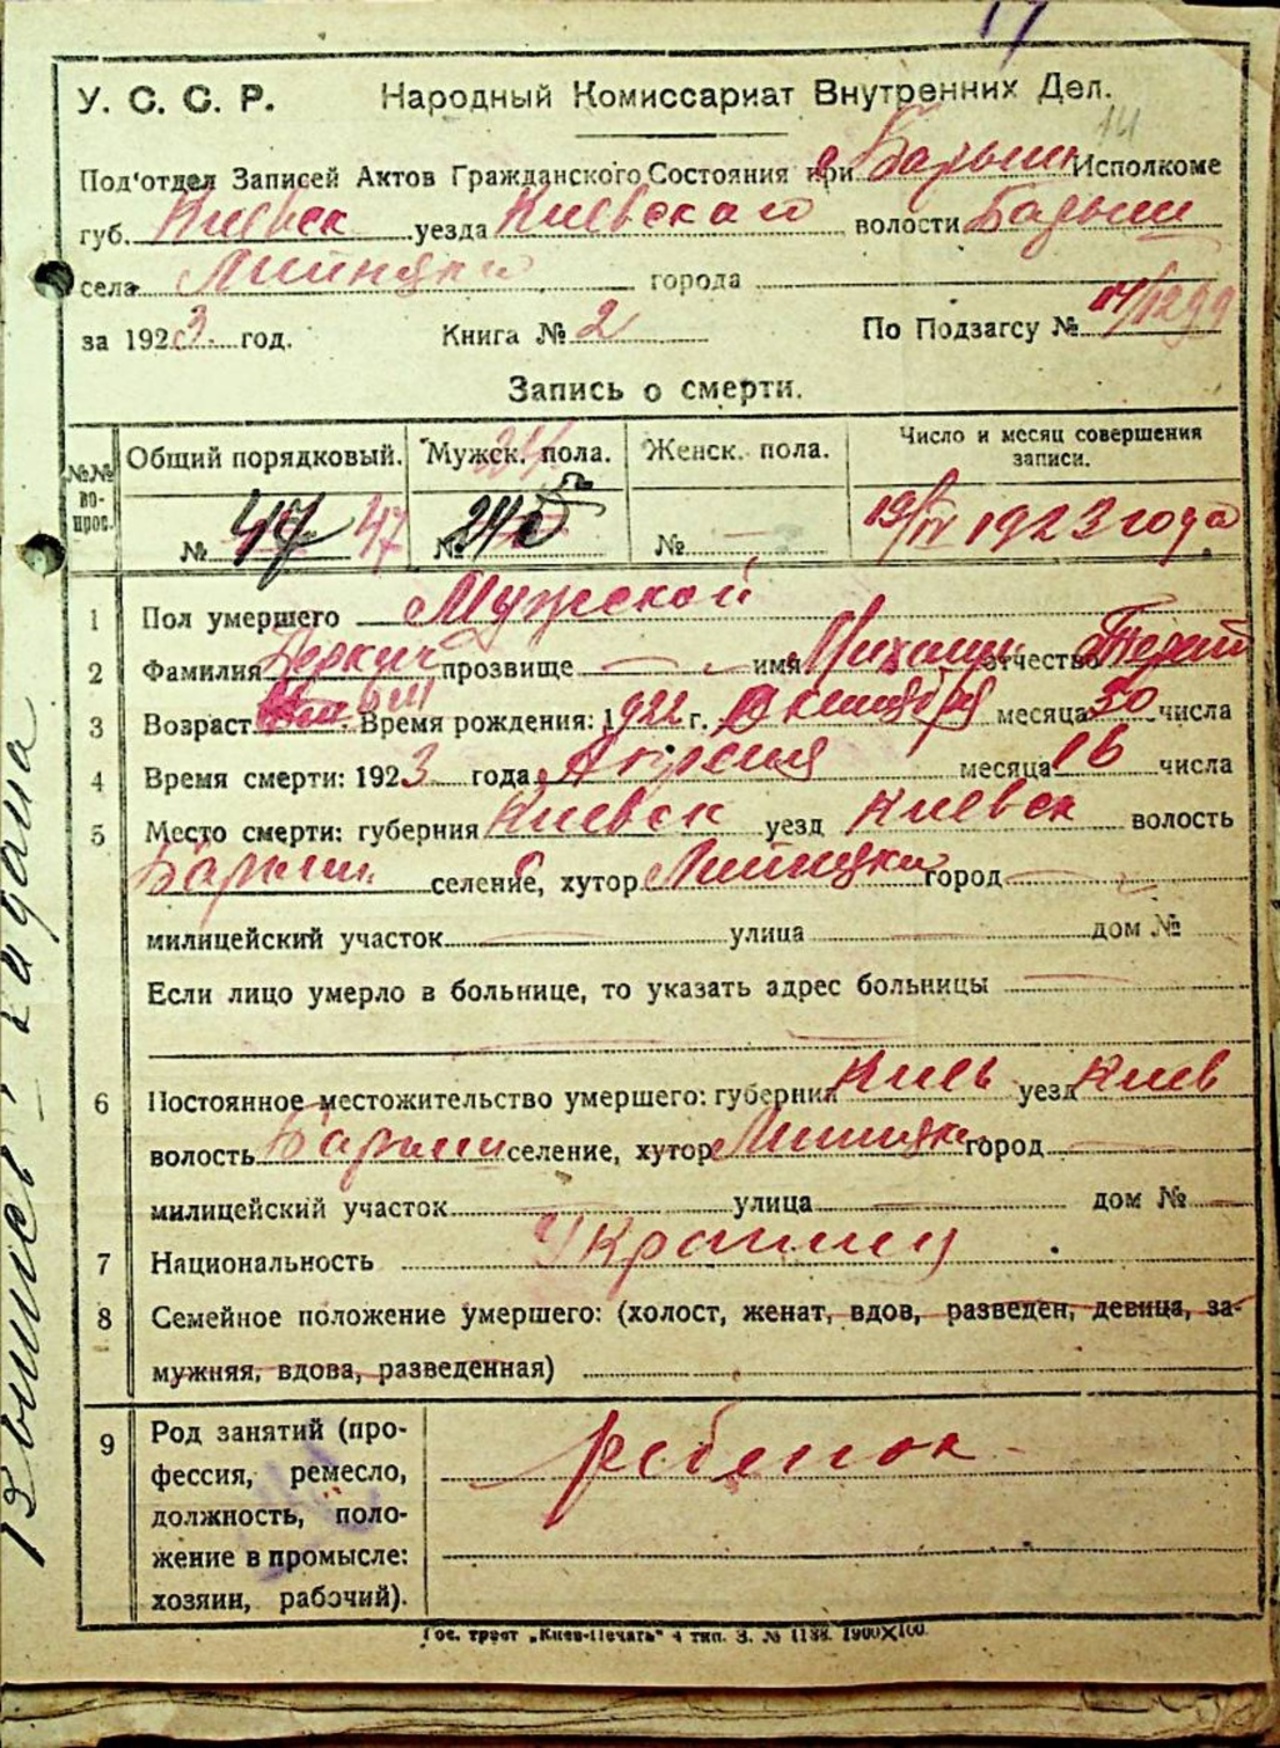 17
У. С. С. Р. Народный Комиссариат Внутренних Дел.
14
Под'отдел Записей Актов Гражданского Состояния при Барыш Исполкоме
губ. Киевск уезда Киевского волости Барыш
села города
за 1923 год. Книга № 2 По Подзагсу №
Запись о смерти.
№№ вопрос. Общий порядковый. Мужск. пола. Женск. пола. Число и месяц совершения записи.
№ 47 47 № № — 19/IV 1923 года
1 Пол умершего Мужской
2 Фамилия Деркач прозвище — имя Михаил отчество Терент
3 Возраст Время рождения: 1922 г. Октября месяца 30 числа
4 Время смерти: 1923 года Апреля месяца 16 числа
5 Место смерти: губерния Киевск уезд Киевск волость
Барыш селение, хутор город —
милицейский участок — улица — дом №
Если лицо умерло в больнице, то указать адрес больницы —
6 Постоянное местожительство умершего: губерния Киев уезд Киев
волость Барыш селение, хутор город —
милицейский участок — улица — дом № —
7 Национальность Украинец
8 Семейное положение умершего: (холост, женат, вдов, разведен, девица, за-
мужняя, вдова, разведенная)
9 Род занятий (про-
фессия, ремесло,
должность, поло-
жение в промысле:
хозяин, рабочий).
ребенок
Гос. трест „Киев-Печать" 4 тип. З. № 1188. 1900×100.